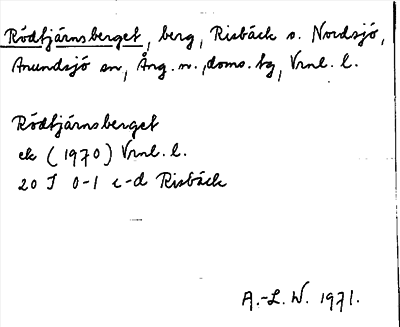 Rödtjärnsberget, berg, Risbäck s. Nordsjö,
Anundsjö sn, Ång. n., doms. tg, Vrnl. l.
Rödtjärnsberget
ek (1970) Vrnl. l.
20 I 0-1 c-d Risbäck
A.-L. W. 1971.